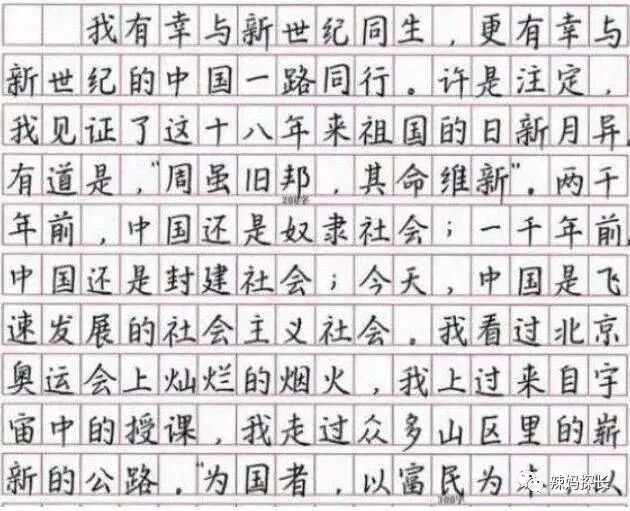 我有幸与新世纪同生，更有幸与
新世纪的中国一路同行。许是注定，
我见证了这十八年来祖国的日新月异，
有道是，“周虽旧邦，其命维新”。两千
200字
年前，中国还是奴隶社会；一千年前，
中国还是封建社会；今天，中国是飞
速发展的社会主义社会。我看过北京
奥运会上灿烂的烟火，我上过来自宇
宙中的授课，我走过众多山区里的崭
新的公路。“为国者，以富民为本，以
300字
辣妈探长